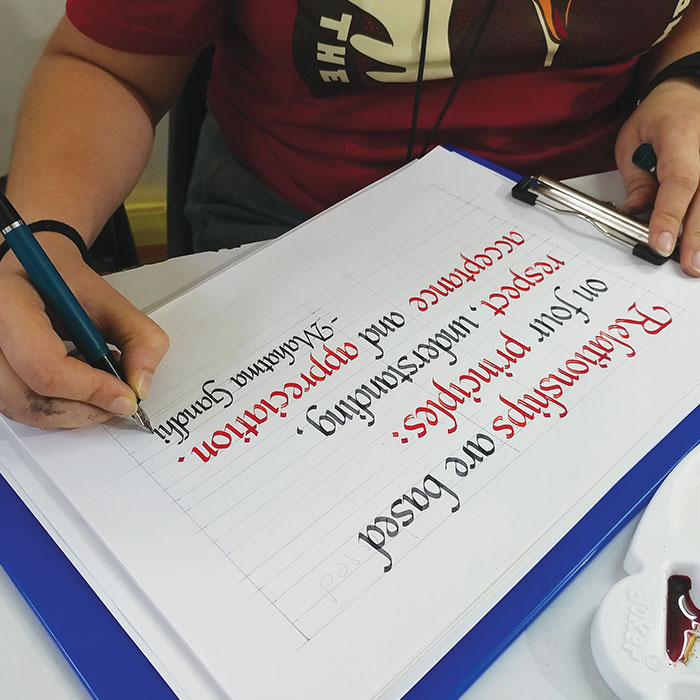 Relationships are based
on four principles:
respect, understanding,
acceptance and appreciation.
-Mahatma Gandhi
THE
Joker